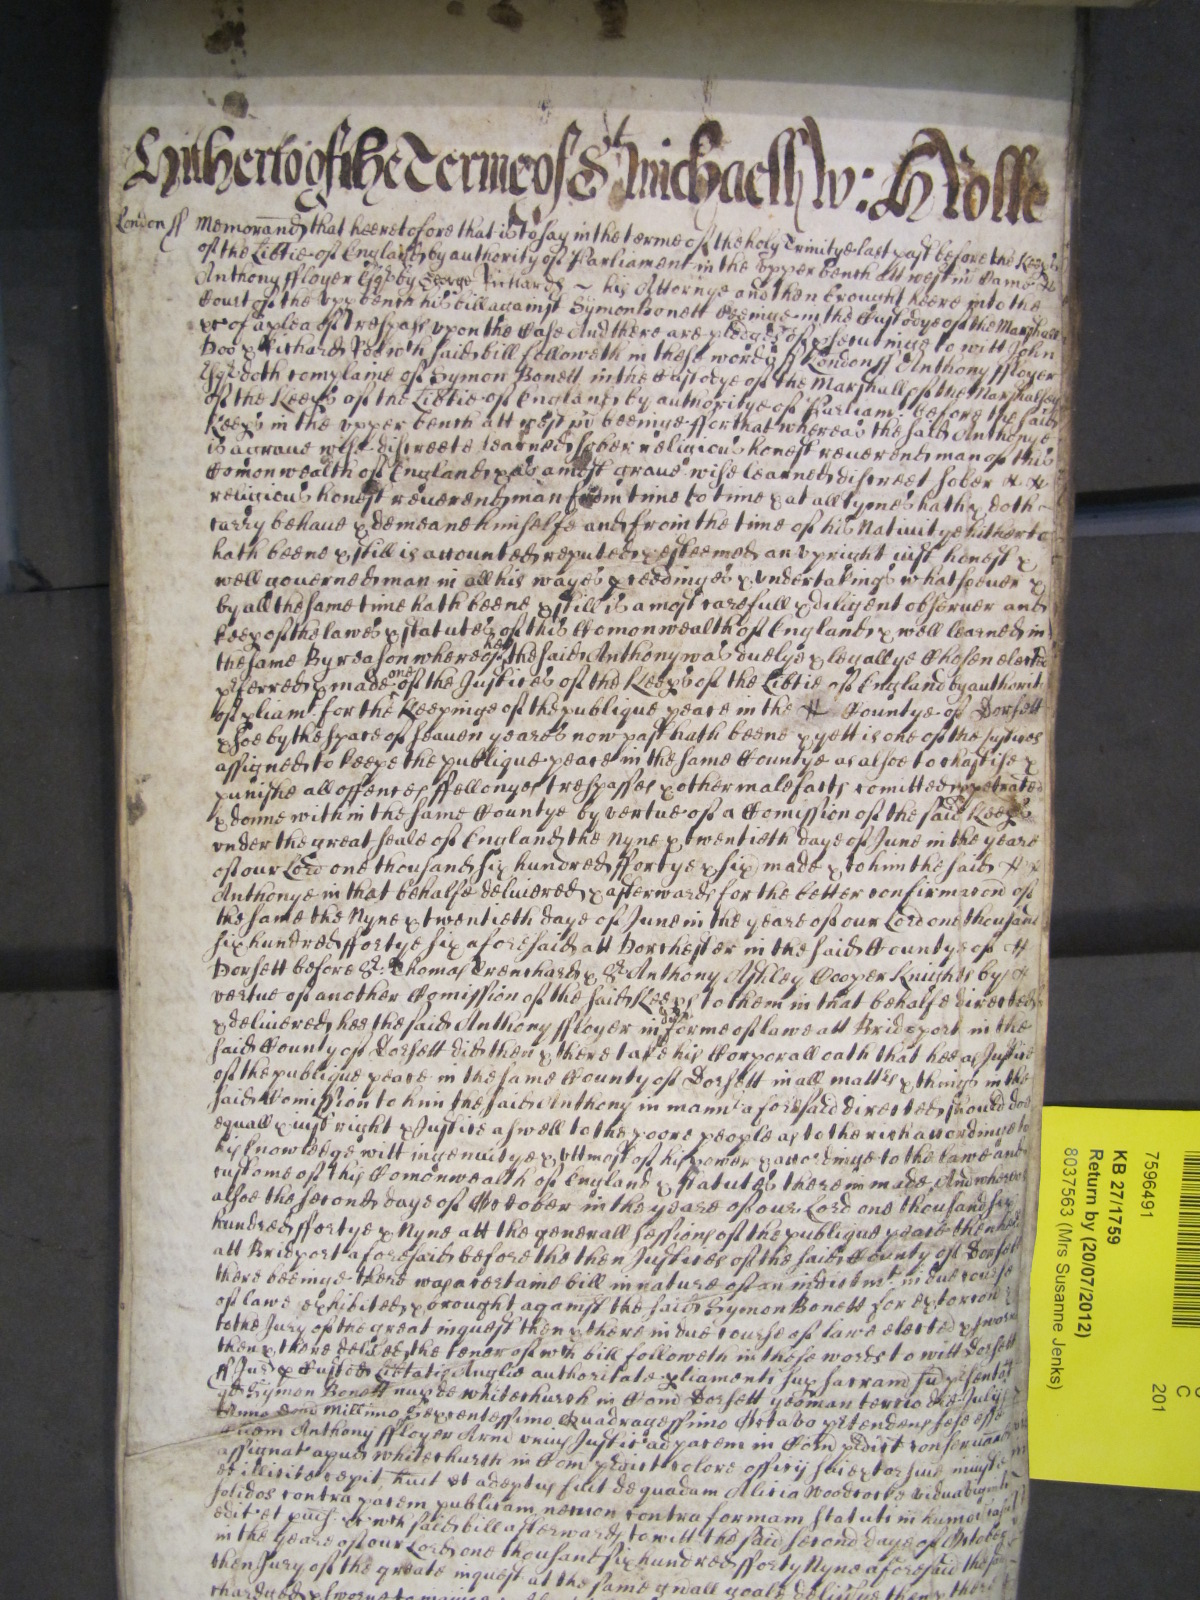 Hitherto of the Terme of St Michaell W: H Rolle
London ss Memorand that heeretofore that is to say in the terme of the holy Trinitye last past before the Keeps
of the Libtie of England by authority of Parliament in the upper bench att westm Came
Anthony ffloyer Esqr by George Richards his Attornye and then brought heere into the
Court of the upp bench his bill against Symon Bonett beeinge in the Custodye of the Marshall
&c of a plea of trespass upon the Case And there are pledges of prosecutinge to witt John
Doo & Richard Roe wch said bill followeth in these words ss London ss Anthony ffloyer
Esqr doth complaine of Symon Bonett in the Custodye of the Marshall of the Marshalsey
of the Keeps of the Libtie of England by authoritye of Parliamt before the said
Keeps in the upper bench att westm beeinge ffor that whereas the said Anthonye
is a grave wise discreete learned sober religious honest reverend man of this
Comonwealth of England & as a most grave wise learned discreet sober
religious honest reverend man from time to time & at all tymes hath & doth
carry behave & demeane himselfe and from the time of his Nativitye hitherto
hath beene & still is accounted reputed & esteemed an upright iust honest &
well governed man in all his wayes pceedinges & undertakings whatsoever &
by all the same time hath beene & still is a most carefull & diligent observer and
keeper of the lawes & statutes of this Comonwealth of England & well learned in
the same By reason whereof hee the said Anthony was duelye & legallye Chosen elected
pferred & made one of the Justices of the Keeps of the Libtie of England by authorit
of pliamt for the Keepinge of the publique peace in the Countye of Dorsett
& soe by the space of seaven yeares now past hath beene & yett is one of the Justices
assigned to keepe the publique peace in the same Countye as alsoe to chastise &
punishe all offences ffellonyes trespasses & other malefacts comitted ppetrated
& donne within the same Countye by vertue of a Comission of the said Keeps
under the great seale of England the Nyne & twentieth daye of June in the yeare
of our Lord one thousand six hundred ffortye & six made & to him the said
Anthonye in that behalfe delivered & afterwards for the better confirmacon of
the same the Nyne & twentieth daye of June in the yeare of our Lord one thousand
six hundred ffortye six aforesaid att Dorchester in the said Countye of
Dorsett before Sr Thomas Trenchard & Sr Anthony Ashley Cooper Knights by
vertue of another Comission of the said Keeps to them in that behalfe directed
& delivered hee the said Anthony ffloyer in due forme of lawe att Bridport in the
said County of Dorsett did then & there take his Corporall oath that hee as Justice
of the publique peace in the same County of Dorsett in all matters & things in the
said Comission to him the said Anthony in manner aforesaid directed should doe
equall & iust right & Justice as well to the poore people as to the rich accordinge to
his knowledge witt ingenuitye & uttmost of his power & accordinge to the lawe and
custome of this Comonwealth of England & statutes therein made And whereas
alsoe the second daye of October in the yeare of our Lord one thousand six
hundred ffortye & Nyne att the generall sessions of the publique peace then held
att Bridport aforesaid before the then Justices of the said County of Dorset
there beeinge there was a certaine bill in nature of an indictmt in due course
of lawe exhibited & brought against the said Symon Bonett for extorcon
to the Jury of the great inquest then & there in due course of lawe elected & sworne
then & there delived the tenor of wch bill followeth in these words to witt Dorsett
ss Jur p Custod Libtatis Anglie authoritate pliamenti sup sacram su psentat
qd Symon Bonett nup de whitchurch in Com Dorsett yeoman tercio die July
Anno Dom Millimo Sexcentessimo Quadragessimo Octavo ptendens sese esse
Anthony ffloyer Armi unius Justic ad pacem in Com pdict conservand
assignat apud whitchurch in Com pdict colore officij sui extorsive iniuste
et illicite cepit huit et adeptus fuit de quadam Alicia Woodcocke vidua
solidos contra pacem publicam necnon contra formam statuti in humoi casu
edit et pvis wch said bill afterwards to witt the said second daye of October
in the yeare of our Lord one thousand six hundred fforty Nyne aforesaid the said
then Jury of the greate inquest at the same gnall goale delivye then & there
charged & sworne to
7596491
KB 27/1759
Return by (20/07/2012)
8037563 (Mrs Susanne Jenks)
C
201